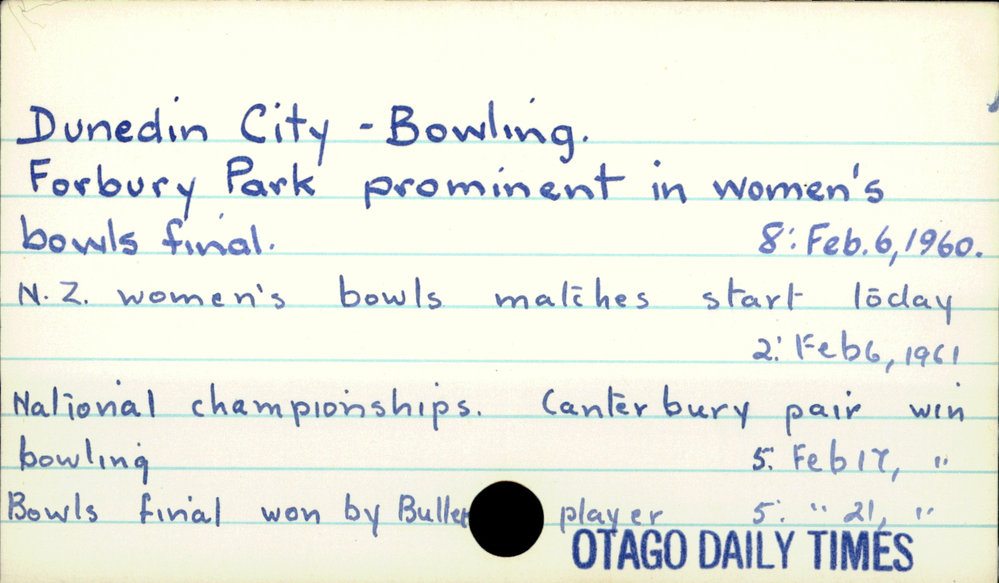 Dunedin City - Bowling.
Forbury Park prominent in women's
bowls final. 8: Feb. 6, 1960.
N. Z. women's bowls matches start today
2: Feb 6, 1961
National championships. Canterbury pair win
bowling 5: Feb 17, "
Bowls final won by Buller player 5: " 21, "
OTAGO DAILY TIMES